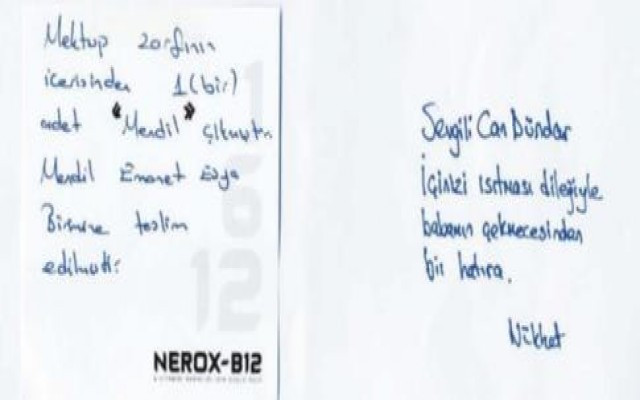 Mektup zarfının
içerisinden 1(bir)
adet "Mendil" çıkmıştır.
Mendil Emanet Eşya
Birimine teslim
edilmiştir.
NEROX-B12
Sevgili Can Dündar
İçinizi ısıtması dileğiyle
babamın çekmecesinden
bir hatıra.
Nükhet